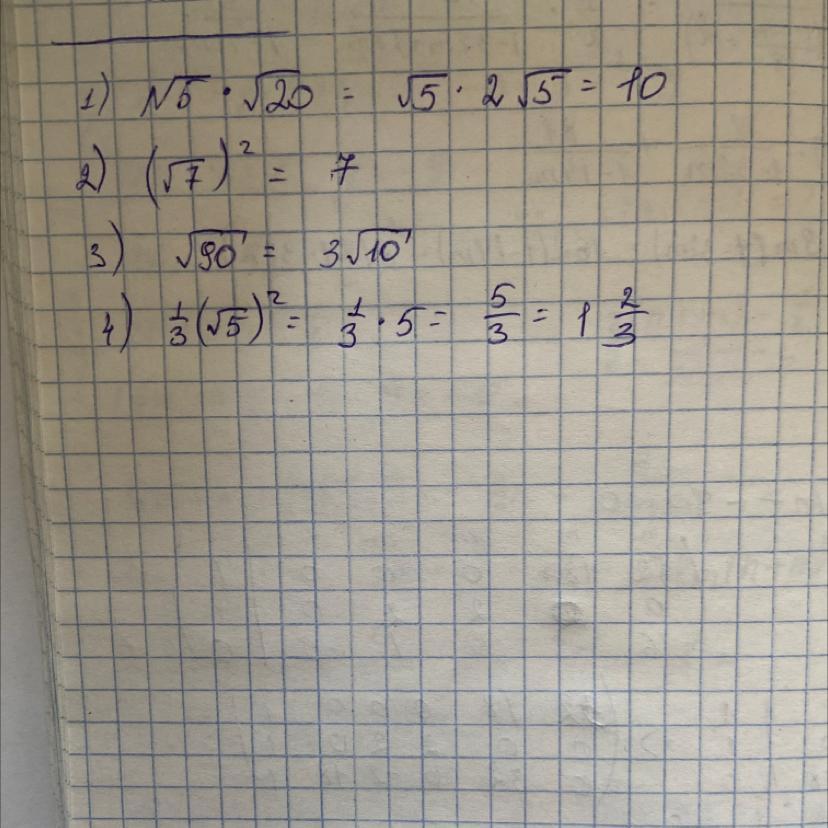 1) √5 · √20 = √5 · 2√5 = 10
2) (√7)² = 7
3) √90 = 3√10
4) 1/3 (√5)² = 1/3 · 5 = 5/3 = 1 2/3